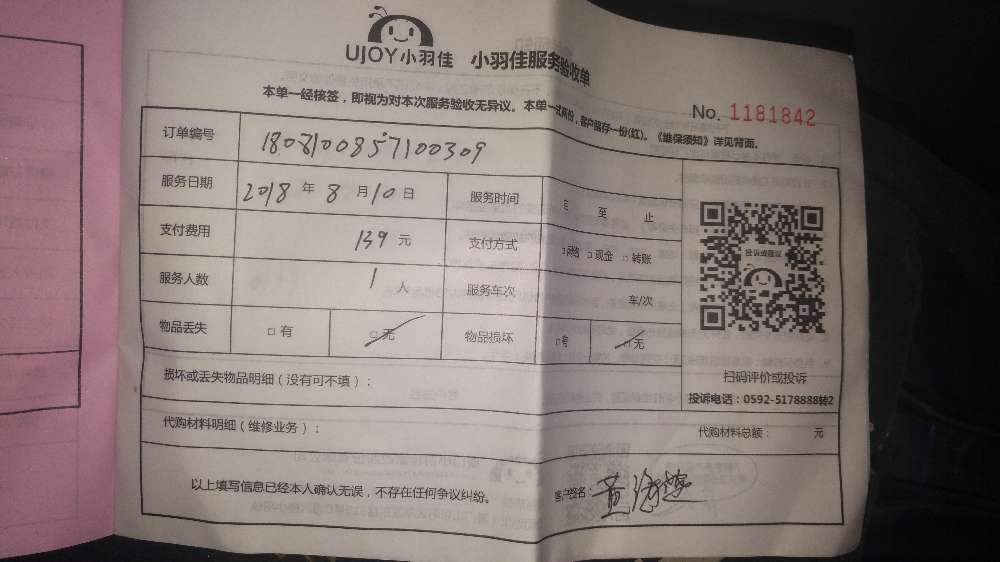 UJOY小羽佳 小羽佳服务验收单
本单一经核签，即视为对本次服务验收无异议。本单一式两份，客户留存一份(红)。《维保须知》详见背面。
No. 1181842
订单编号 1808100857100309
服务日期 2018 年 8 月 10 日 服务时间 至 止
支付费用 139 元 支付方式 □网络 □现金 □转账
服务人数 1 人 服务车次 车/次
物品丢失 □有 □无 物品损坏 □有 □无
投诉或建议
扫码评价或投诉
投诉电话：0592-5178888转2
损坏或丢失物品明细（没有可不填）：
代购材料明细（维修业务）：
代购材料总额： 元
以上填写信息已经本人确认无误，不存在任何争议纠纷。
客户签名：黄